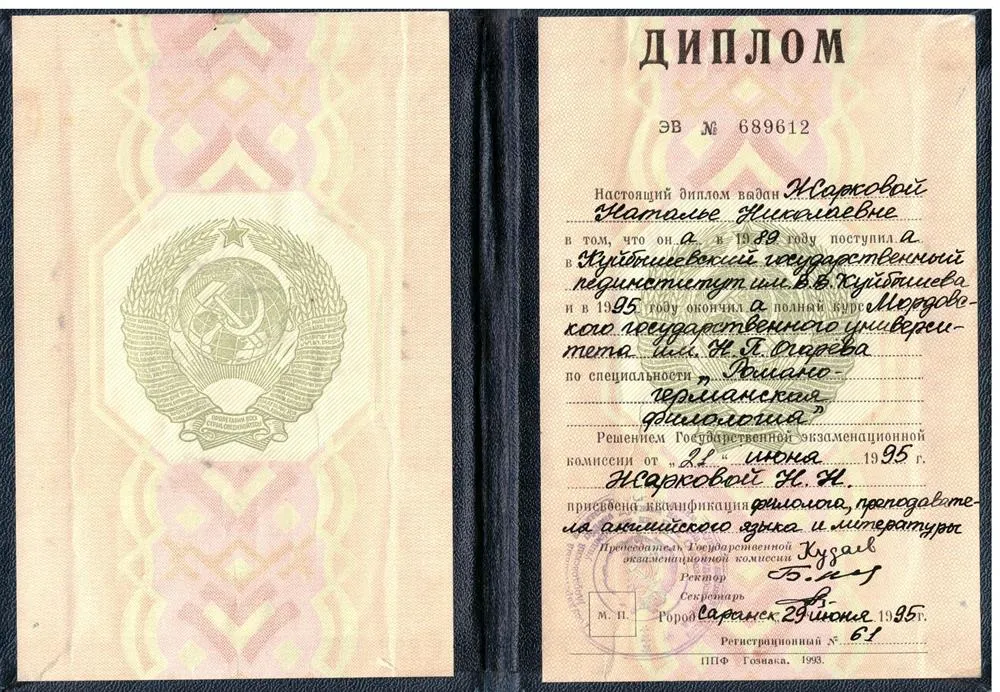 ПРОЛЕТАРИИ ВСЕХ
СТРАН, СОЕДИНЯЙТЕСЬ!
ДИПЛОМ
ЭВ № 689612
Настоящий диплом выдан Жарковой
Наталье Николаевне
в том, что он а в 19 89 году поступил а
в Куйбышевский государственный
пединститут им. В.В. Куйбышева
и в 19 95 году окончил а полный курс Мордовс-
кого государственного универси-
тета им. Н.П. Огарёва
по специальности „Романо-
германская
филология"
Решением Государственной экзаменационной
комиссии от „21" июня 19 95 г.
Жарковой Н.Н.
присвоена квалификация филолога, преподавате-
ля английского языка и литературы
Председатель Государственной
экзаменационной комиссии
Ректор
Секретарь
М. П.
Город Саранск, 29 июня 19 95 г.
Регистрационный № 61
ППФ Гознака. 1993.